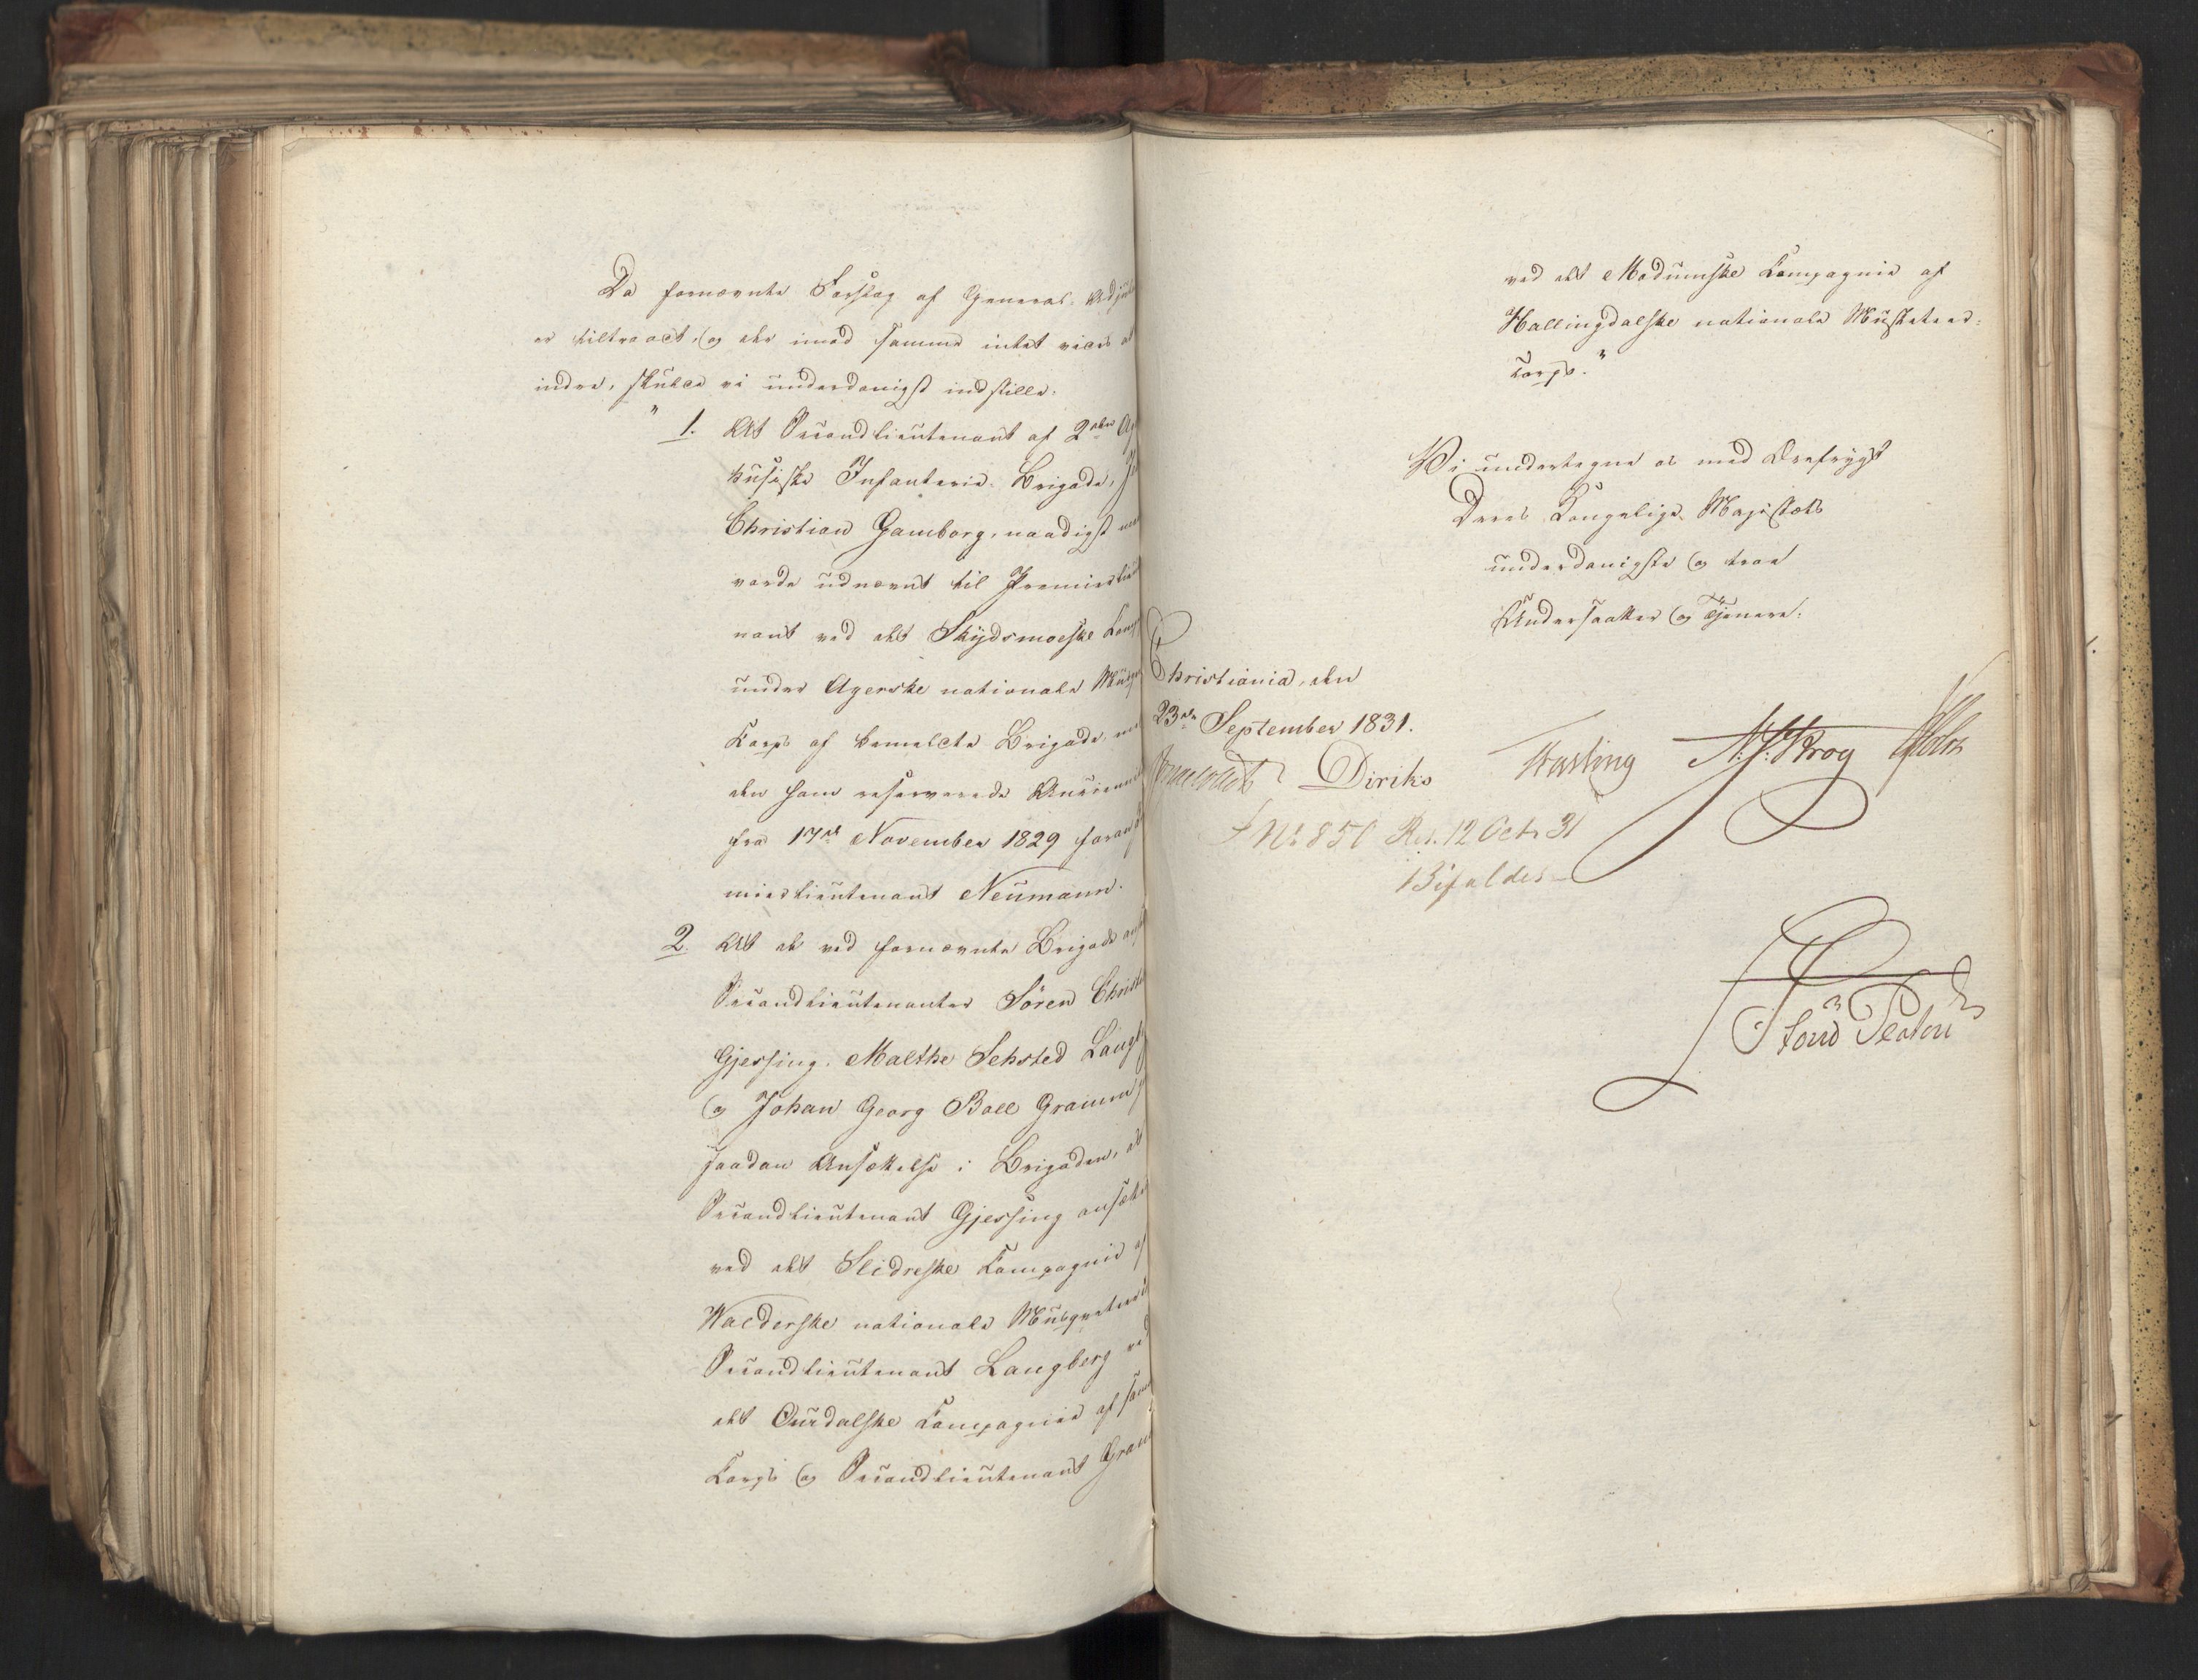 Da fornævnte Forslag af General-Adju
er tiltraadt, og der imod samme intet vides at
indre, skulle vi underdanigst indstille:
" 1. At Secondlieutenant af 2den Ag
husiske Infanterie-Brigade,
Christian Gamborg, naadigst
vorde udnævnt til Premierlieu
nant ved det Skydsmoeske Comp
under Agerske nationale Musq
Corps af bemeldte Brigade, med
den ham reserverede Ancienni
fra 17de November 1829 foran
mierlieutenant Neumann.
2. At de ved fornævnte Brigade ans
Secondlieutenanter Sören Christ
Gjessing, Malthe Sehsted Langb
og Johan Georg Boll Gramm
saadan Ansættelse i Brigaden, at
Secondlieutenant Gjessing ansætte
ved det Slidreske Compagnie af
Walderske nationale Musqueteer
Secondlieutenant Langberg ved
det Ourdalske Compagnie af sam
Corps og Secondlieutenant Gram
ved det Modumske Compagnie af
Hallingdalske nationale Musketeer-
Corps."
Vi undertegne os med Ærefrygt
Deres Kongelige Majestæts
underdanigste og troe
Undersaatter og Tjenere.
Christiania, den
23de September 1831.
Diriks
N. J. Krog
Nr 850 Res. 12 Octr 31
Bifaldes